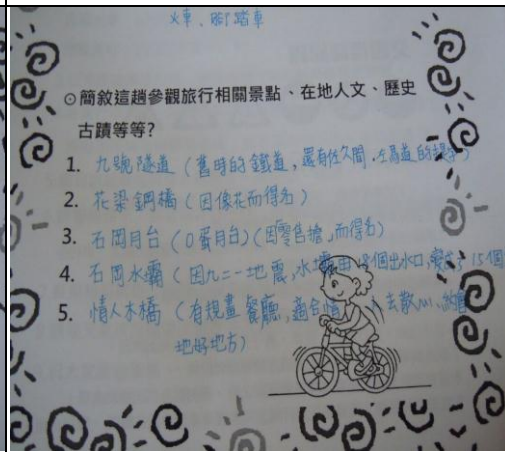 火車、腳踏車
⊙簡敘這趟參觀旅行相關景點、在地人文、歷史
古蹟等等?
1. 九號隧道(舊時的鐵道,還有佐久間.左馬追的提字)
2. 花梁鋼橋(因像花而得名)
3. 石岡月台(0蛋月台)(因零售搶,而得名)
4. 石岡水霸(因九二一地震,水壩由18個出水口,變成了15個
5. 情人木橋(有規畫餐廳,適合情人去散心、
地好地方)